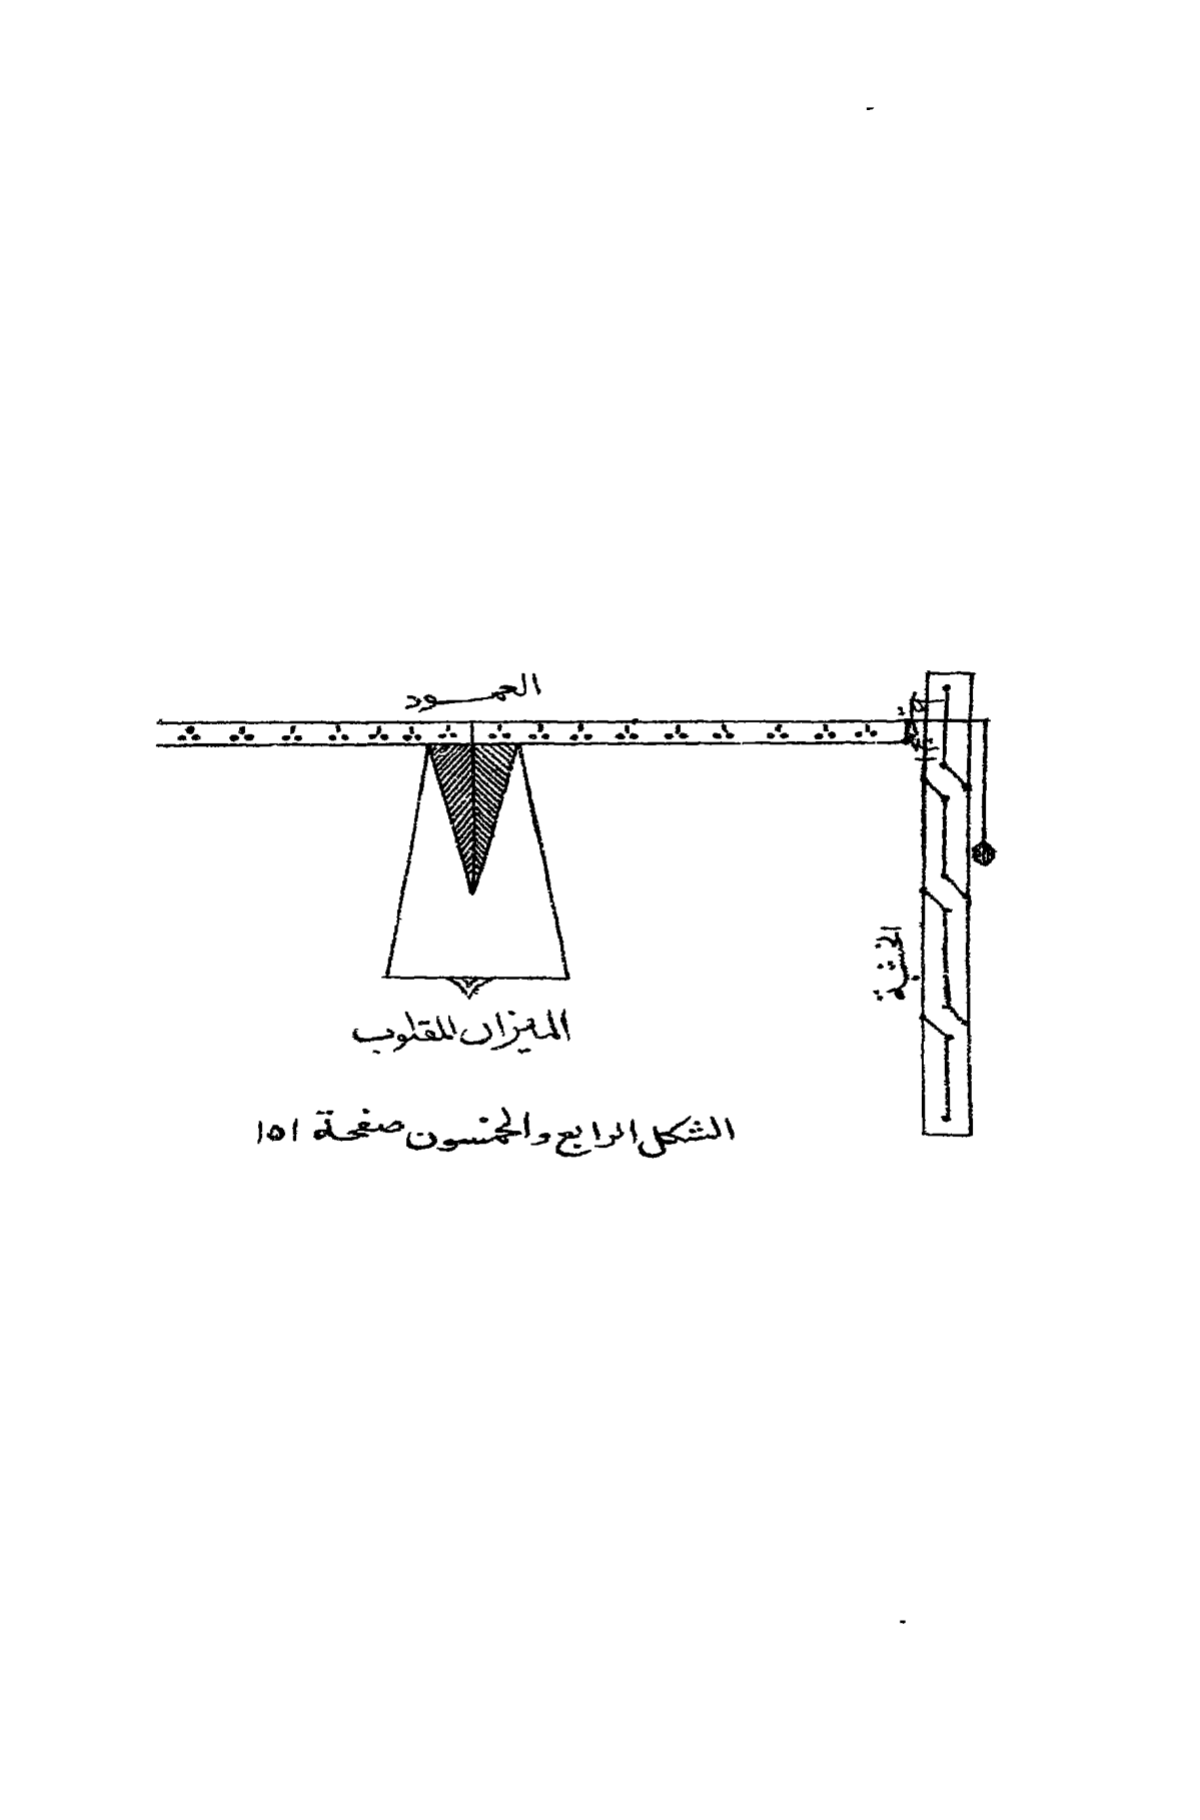 العمود
الخشبة
الميزان المقلوب
الشكل الرابع والخمسون صفحة ١٥١